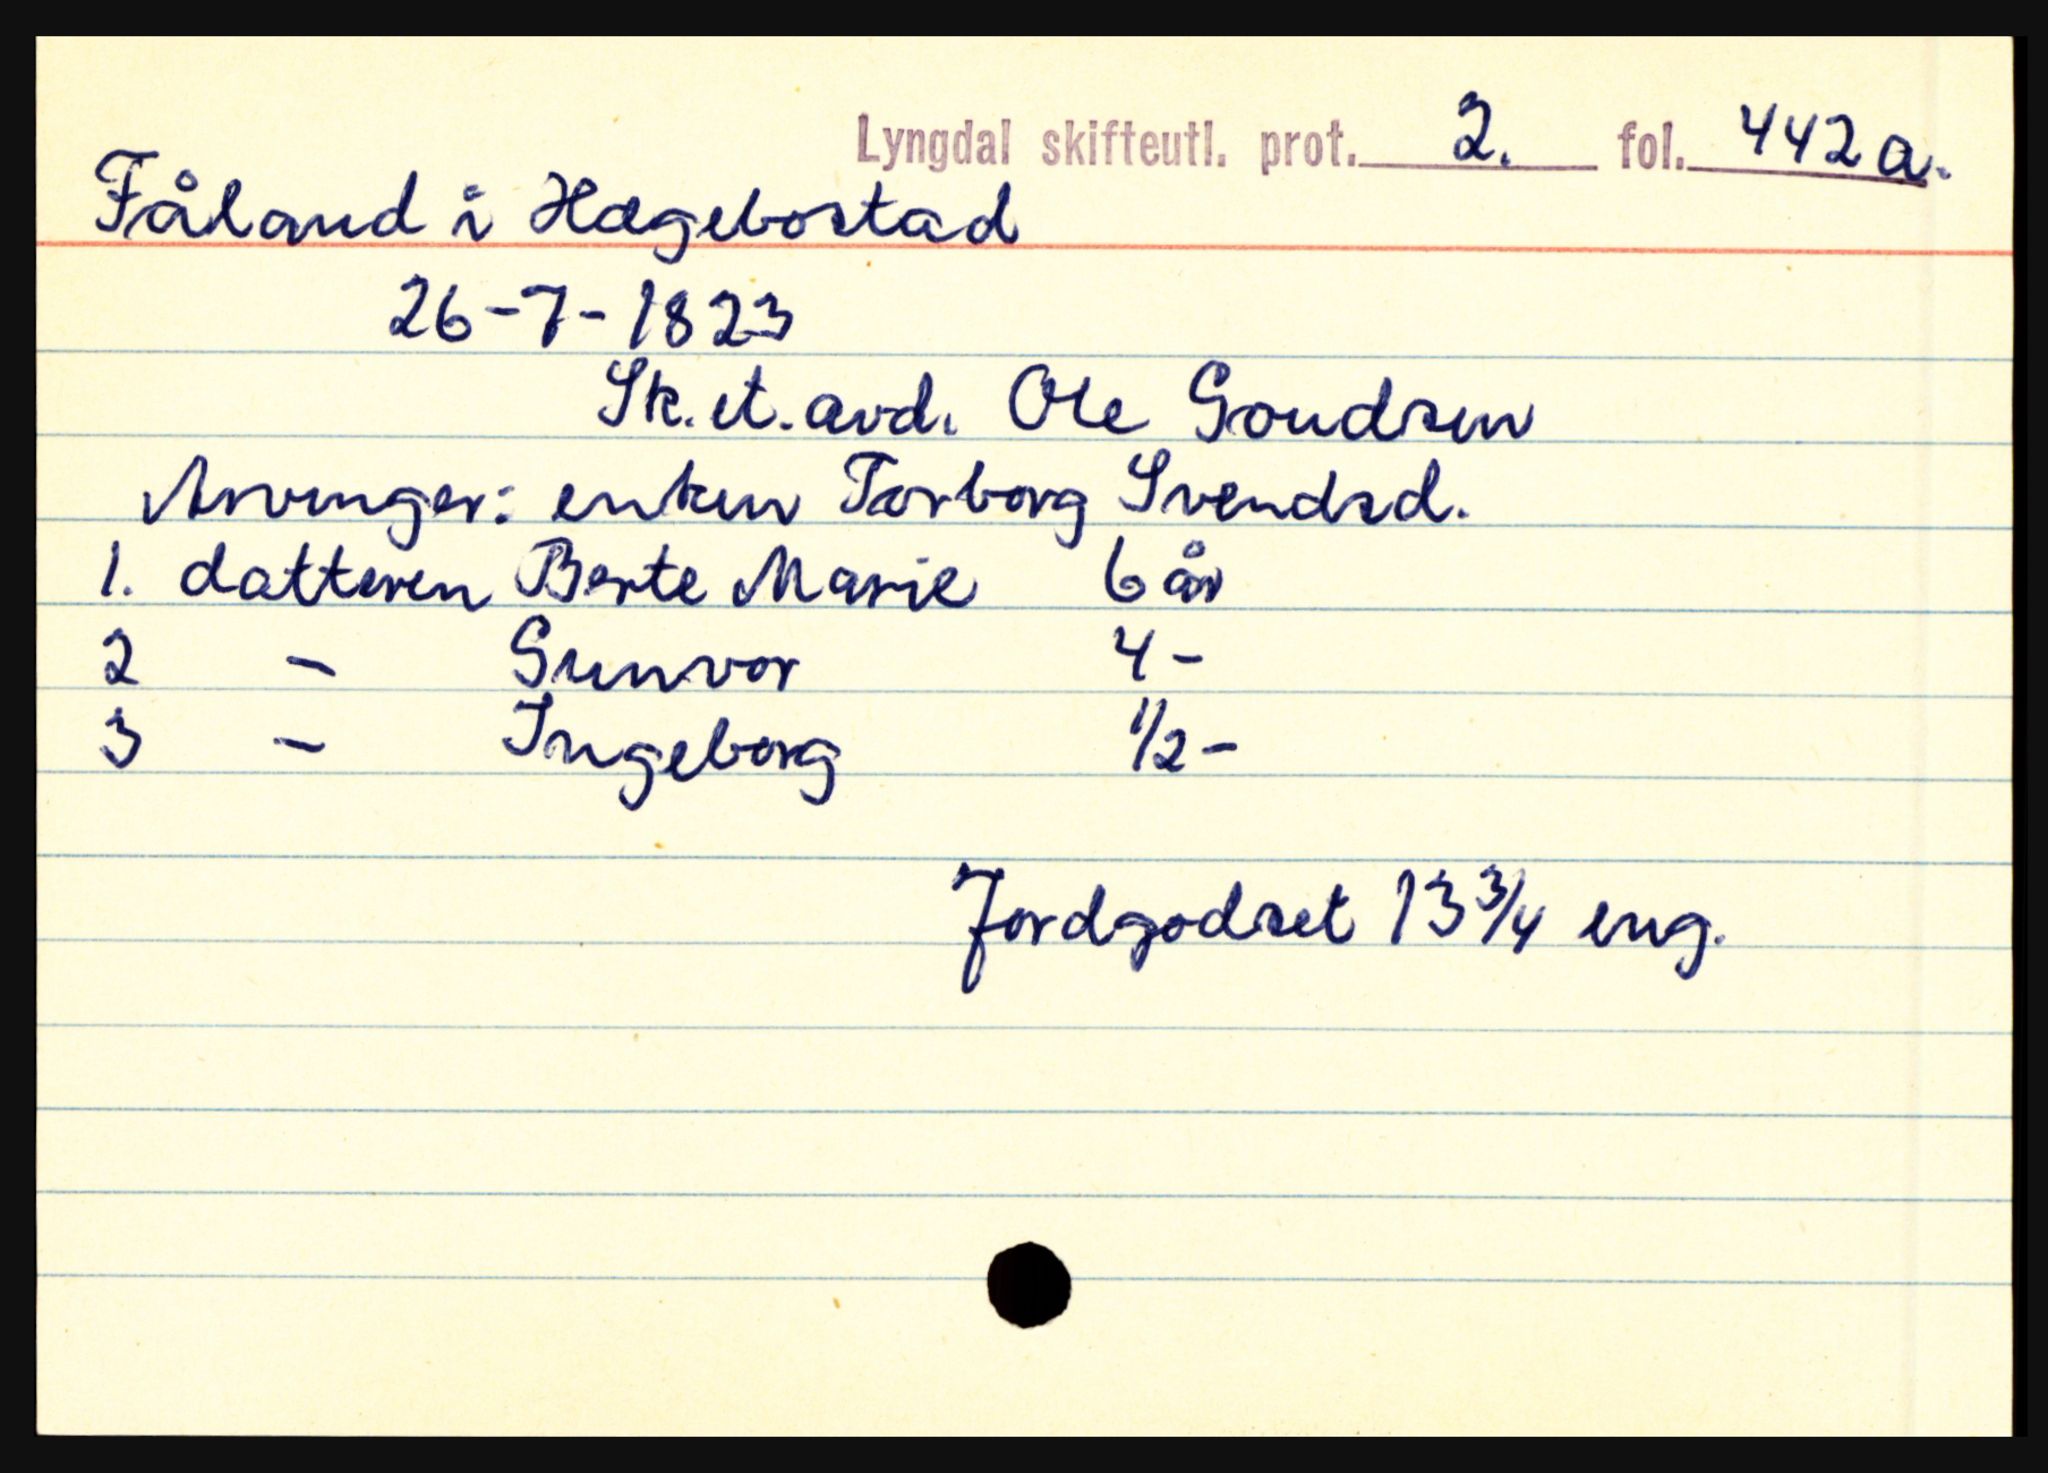 Lyngdal skifteutl. prot. 2. fol. 442a.
Fåland i Hægebostad
26-7-1823
Sk.et.avd. Ole Goudsen
Arvinger: enken Torborg Svendsd.
1. datteren Berte Marie 6 år
2 - Gunvor 4 -
3 - Ingeborg 1/2 -
Jordgodset 13 3/4 eng.